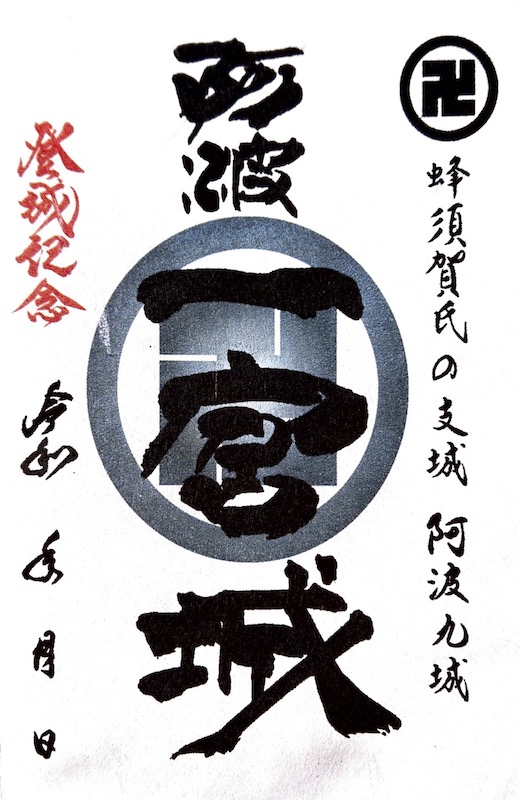 蜂須賀氏の支城 阿波九城
阿波
一宮城
登城記念
令和 年 月 日